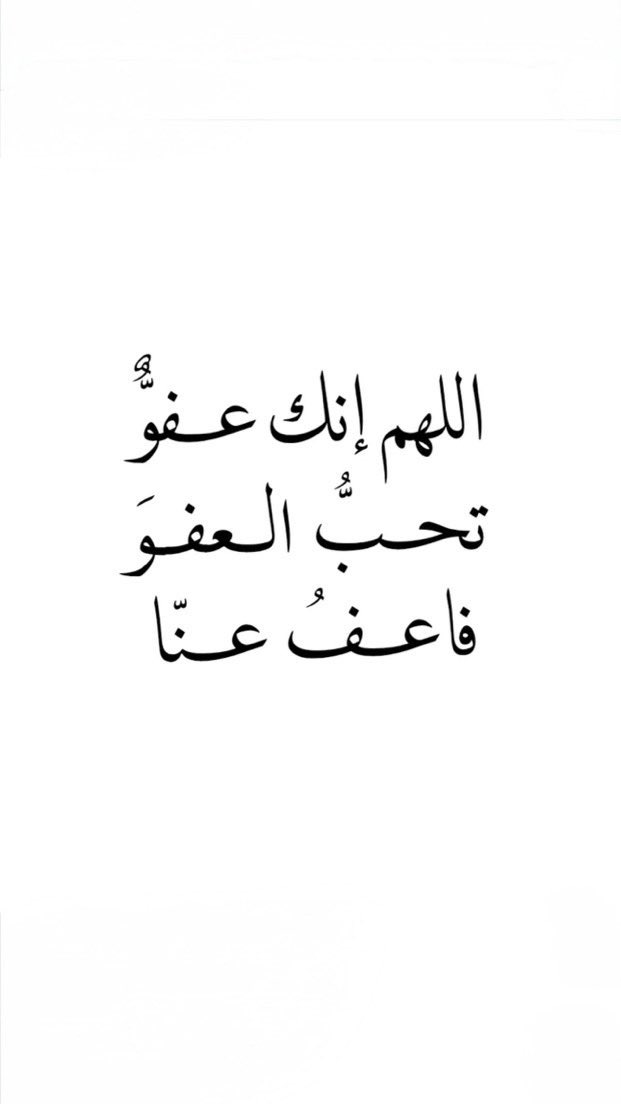 اللهم إنك عفوٌّ
تحبُّ العفوَ
فاعفُ عنّا